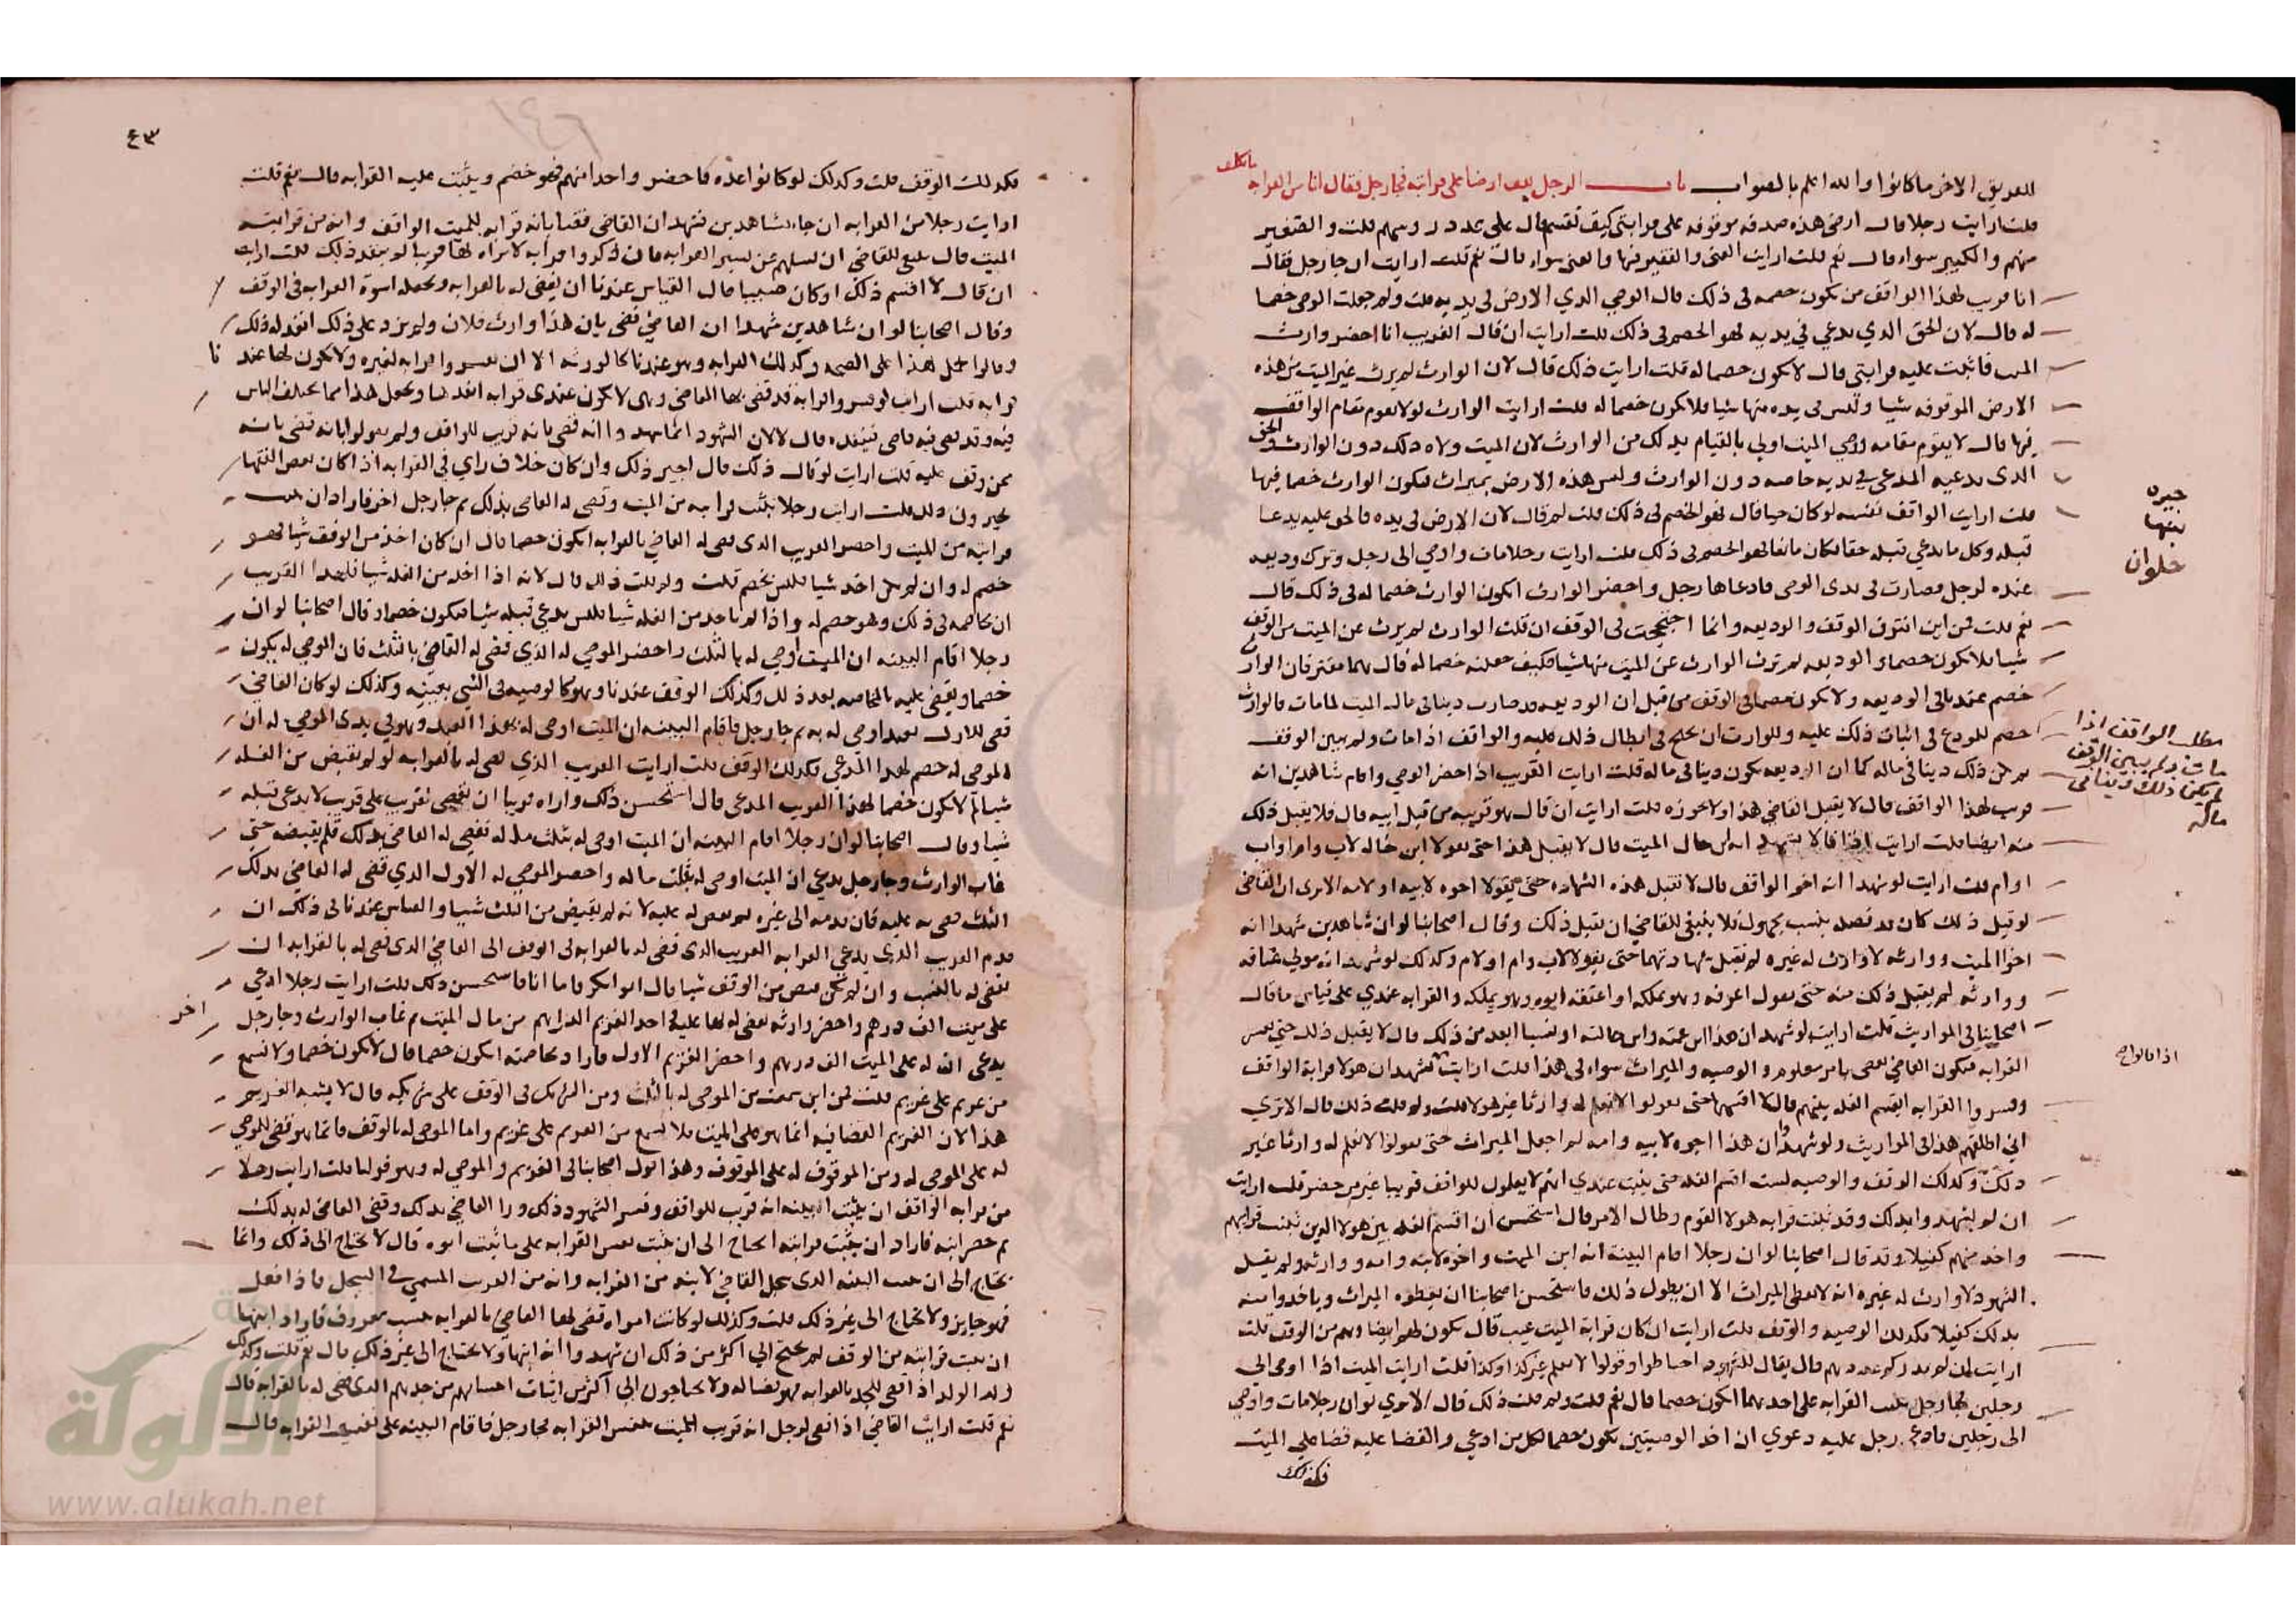 للفريق الاخر ما كانوا والله اعلم بالصواب باب الرجل يقف ارضا على قرابته فجا رجل فقال انا من القرابه
قلت ارايت رجلا قال ارضي هذه صدقه موقوفه على قرابتي كيف تقسم قال على عدد روسهم قلت والصغير
منهم والكبير سواء قال نعم قلت ارايت الغني والفقير فيها والغني سواء قال نعم قلت ارايت ان جا رجل فقال
انا قريب لهذا الواقف من يكون خصمه في ذلك قال الوصي الذي الارض في يديه قلت ولم جعلت الوصي خصما
له قال لان الحق الذي يدعي في يديه فهو الخصم في ذلك قلت ارايت ان قال القريب انا احضر وارث
الميت فاثبت عليه قرابتي قال لا يكون خصما له قلت ارايت ذلك قال لان الوارث لم يرث عن الميت من هذه
الارض الموقوفه شيا وليس في يده منها شيا فلا يكون خصما له قلت ارايت الوارث لو لا يقوم مقام الواقف
فيها قال لا يقوم مقامه وصي الميت اولى بالقيام بذلك من الوارث لان الميت ولاه ذلك دون الوارث والحق
الذي يدعيه المدعي في يديه خاصه دون الوارث وليس هذه الارض بميراث فيكون الوارث خصما فيها
قلت ارايت الواقف نفسه لو كان حيا قال فهو الخصم في ذلك قلت لم قال لان الارض في يده فالحق عليه يدعا
قبله وكل ما ندعي قبله حقا فكان مانعا فهو الخصم في ذلك قلت ارايت رجلا مات واوصى الى رجل وترك وديعه
عنده لرجل فصارت في يدي الوصي فادعاها رجل واحضر الوارث ايكون الوارث خصما له في ذلك قال
نعم قلت فمن اين افترق الوقف والوديعه وانما احتججت في الوقف ان قلت الوارث لم يرث عن الميت من الوقف
شيا فلا يكون خصما والوديعه لم يرث الوارث عن الميت منها شيا فكيف جعلته خصما له قال هما مفترقان الوارث
خصم عندنا في الوديعه ولا يكون خصما في الوقف من قبل ان الوديعه قد صارت دينا في مال الميت لما مات فالوارث
خصم للمودع في اثبات ذلك عليه وللوارث ان يحتج في ابطال ذلك عليه والواقف اذا مات ولم يبين الوقف
لم يكن ذلك دينا في ماله كما ان الوديعه يكون دينا في ماله قلت ارايت القريب اذا احضر الوصي واقام شاهدين انه
قريب لهذا الواقف قال لا يقبل القاضي هذا ولا يجوزه قلت ارايت ان قال هو قريبه من قبل ابيه قال فلا يقبل ذلك
منه ايضا قلت ارايت اذا قالا نشهد انه ابن خال الميت قال لا يقبل هذا حتى يقولا ابن خاله لاب وام او اب
او ام قلت ارايت لو شهدا انه اخو الواقف قال لا تقبل هذه الشهاده حتى يقولا اخوه لابيه او لامه الا ترى ان القاضي
لو قبل ذلك كان قد قضى بنسب مجهول فلا ينبغي للقاضي ان يقبل ذلك وقال اصحابنا لو ان شاهدين شهدا انه
اخو الميت ووارثه لا وارث له غيره لم تقبل شهادتهما حتى يقولا لاب وام او لام وكذلك لو شهدا انه مولى عتاقه
ووارثه لم يقبل ذلك منه حتى يقول اعرفه وهو يملكه او اعتقه ابوه وهو يملكه والقرابه عندي على قياس ما قال
اصحابنا في المواريث قلت ارايت لو شهد ان هذا ابن عمته وابن خالته او نسبا ابعد من ذلك قال لا يقبل ذلك حتى يفسر
القرابه فيكون القاضي يقضي بامر معلوم والوصيه والميراث سواء في هذا قلت ارايت لو شهد ان هولا قرابة الواقف
وفسروا القرابه ايقسم الغله بينهم قال لا اقسمها حتى يقولوا لا نعلم له وارثا غير هولا قلت ولم قلت ذلك قال الا ترى
اني اطلقهم هذا في المواريث ولو شهدوا ان هذا اخوه لابيه وامه لم اجعل الميراث حتى يقولوا لا نعلم له وارثا غير
ذلك وكذلك الوقف والوصيه لست اقسم الغله حتى يثبت عندي انهم لا يعلمون للواقف قريبا غير من حضر قلت ارايت
ان لم يشهدوا بذلك وقد ثبتت قرابه هولا القوم وطال الامر قال استحسن ان اقسم الغله بين هولا الذين ثبتت قرابتهم
واخذ منهم كفيلا وقد قال اصحابنا لو ان رجلا اقام البينه انه ابن الميت واخوه لابيه وامه ووارثه ولم يقل
الشهود لا وارث له غيره انه لا يعطى الميراث الا ان يطول ذلك فاستحسن اصحابنا ان يعطوه الميراث وياخذوا منه
بذلك كفيلا فكذلك الوصيه والوقف قلت ارايت ان كان قرابة الميت غيب قال يكون لهم ايضا وهم من الوقف قلت
ارايت ان لم يدر كم عددهم قال يقال للشهود احتاطوا وقولوا لا نعلم غير كذا وكذا قلت ارايت الميت اذا اوصى الى
رجلين فجا رجل يثبت القرابه على احدهما ايكون خصما قال نعم قلت ولم قلت ذلك قال الا ترى لو ان رجلا مات واوصى
الى رجلين فادعى رجل عليه دعوى ان احد الوصيين يكون خصما لكل من ادعى والقضا عليه قضا على الميت
فكذلك
خبره
بنتها
حلوان
مطلب الواقف اذا
مات ولم يبين الوقف
لم يكن ذلك دينا في
ماله
٤٣
فكذلك الوقف قلت وكذلك لو كانوا عده فاحضر واحدا منهم فهو خصم ويثبت عليه القرابه قال نعم قلت
ارايت رجلا من القرابه ان جاء بشاهدين فشهدا ان القاضي قضا بانه قرابه للميت الواقف وانه من قرابته
الميت قال ينبغي للقاضي ان يسلهم عن تفسير القرابه فان ذكروا قرابه لا يراه لها قريبا لم ينفذ ذلك قلت ارايت
ان قال لا افسر ذلك او كان صبيا قال القياس عندنا ان يقضي له بالقرابه ويجعله اسوة القرابه في الوقف
وقال اصحابنا لو ان شاهدين شهدا ان القاضي قضى بان هذا وارث فلان ولم يزد على ذلك انفذ له ذلك
وقالوا احمل هذا على الصحه وكذلك القرابه وهو عندنا كالورثه الا ان يفسروا قرابه لغيره ولا يكون لها عندنا
قرابه قلت ارايت لو فسروا قرابة قد قضى بها القاضي وهي لا يكون عندي قرابه انفذها ويجعل هذا مما يختلف الناس
فيه وقد قضى فيه قاضي فينفذه قال لا لان الشهود انما شهدوا انه قضى بانه قريب للواقف ولم يقولوا بانه قضى بانه
ممن وقف عليه قلت ارايت لو قال ذلك قال اجيز ذلك وان كان خلاف رايي في القرابه اذا كان بعض الفقها
يجيزون ذلك قلت ارايت رجلا يثبت قرابته من الميت وقضى له القاضي بذلك ثم جا رجل اخر فاراد ان يثبت
قرابته من الميت واحضر القريب الذي قضى له القاضي بالقرابه ايكون خصما قال ان كان اخذ من الوقف شيا فهو
خصم له وان لم يكن اخذ شيا فليس بخصم قلت ولم قلت ذلك قال لانه اذا اخذ من الغله شيا فلهذا القريب
ان يخاصمه في ذلك وهو خصم له واذا لم ياخذ من الغله شيا فليس يدعي قبله شيا فيكون خصما وقال اصحابنا لو ان
رجلا اقام البينه ان الميت اوصى له بالثلث واحضر الموصى له الذي قضى له القاضي بالثلث فان الموصى له يكون
خصما ويقضى عليه بالمخاصمه بعد ذلك وكذلك الوقف عندنا وهو كالوصيه في الشي بعينه وكذلك لو كان القاضي
قضى للاول بعبد اوصى له به ثم جا رجل فاقام البينه ان الميت اوصى له بهذا العبد وهو في يدي الموصى له ان
الموصى له خصم لهذا المدعي فكذلك الوقف قلت ارايت القريب الذي قضى له بالقرابه لو لم يقبض من الغله
شيا لم لا يكون خصما لهذا القريب المدعي قال استحسن ذلك واراه قريبا ان يقضى لقريب على قريب لا يدعى قبله
شيا وقال اصحابنا لو ان رجلا اقام البينه ان الميت اوصى له بثلث ماله فقضى له القاضي بذلك فلم يقبضه حتى
غاب الوارث وجا رجل يدعي ان الميت اوصى له بثلث ماله واحضر الموصى له الاول الذي قضى له القاضي بذلك
الثلث قضى به عليه فان قدمه الى غيره لم يقض له عليه لانه لم يقبض من الثلث شيا والقياس عندنا في ذلك ان
قدم القريب الذي يدعي القرابه القريب الذي قضى له بالقرابه في الوقف الى القاضي الذي قضى له بالقرابه ان
يقضى له بالنسب وان لم يكن قبض من الوقف شيا قال ابو بكر فاما انا فاستحسن ذلك قلت ارايت رجلا ادعى
على ميت الف درهم واحضر وارثه فقضى له بها عليه فاحد الغريم الدراهم من مال الميت ثم غاب الوارث وجا رجل اخر
يدعي ان له على الميت الف درهم واحضر الغريم الاول فاراد يخاصمه ايكون خصما قال لا يكون خصما ولا نسمع
من غريم على غريم قلت فمن اين سمعت من الموصى له بالثلث ومن الشريك في الوقف على شريكه قال لا يشبه الغريم
هذا لان الغريم القضا فيه انما هو على الميت فلا يسمع من الغريم على غريم واما الموصى له بالوقف فانما هو قضى للموصى
له على الموصى له ومن الموقوف له على الموقوف وهذا قول اصحابنا في الغريم والموصى له وهو قولنا قلت ارايت رجلا
من قرابه الواقف ان يثبت البينه انه قريب للواقف وفسر الشهود ذلك ورا القاضي بذلك وقضى القاضي له بذلك
ثم حضر ابنه فاراد ان يثبت قرابته ايحتاج الى ان يثبت نفس القرابه على ما يثبت ابوه قال لا يحتاج الى ذلك وانما
يحتاج الى ان يثبت البينه الذي سجل القاضي لابيه من القرابه وانه من القريب المسمى في السجل فاذا فعل
فهو جايز ولا يحتاج الى غير ذلك قلت وكذلك لو كانت امراه قضى لها القاضي بالقرابه بنسب معروف فاراد ابنها
ان يثبت قرابته من الوقف لم يحتج الى اكثر من ذلك ان شهدوا انه ابنها ولا يحتاج الى غير ذلك قال نعم قلت وكذلك
ولد الولد اذا قضى للجد بالقرابه فهو قضا له ولا يحتاجون الى اكثر من اثبات انسابهم من جدهم الذي قضى له بالقرابه قال
نعم قلت ارايت القاضي اذا قضى لرجل انه قريب للميت بنفس القرابه فجا رجل فاقام البينه على تفسير القرابه قال
الألوكة
www.alukah.net